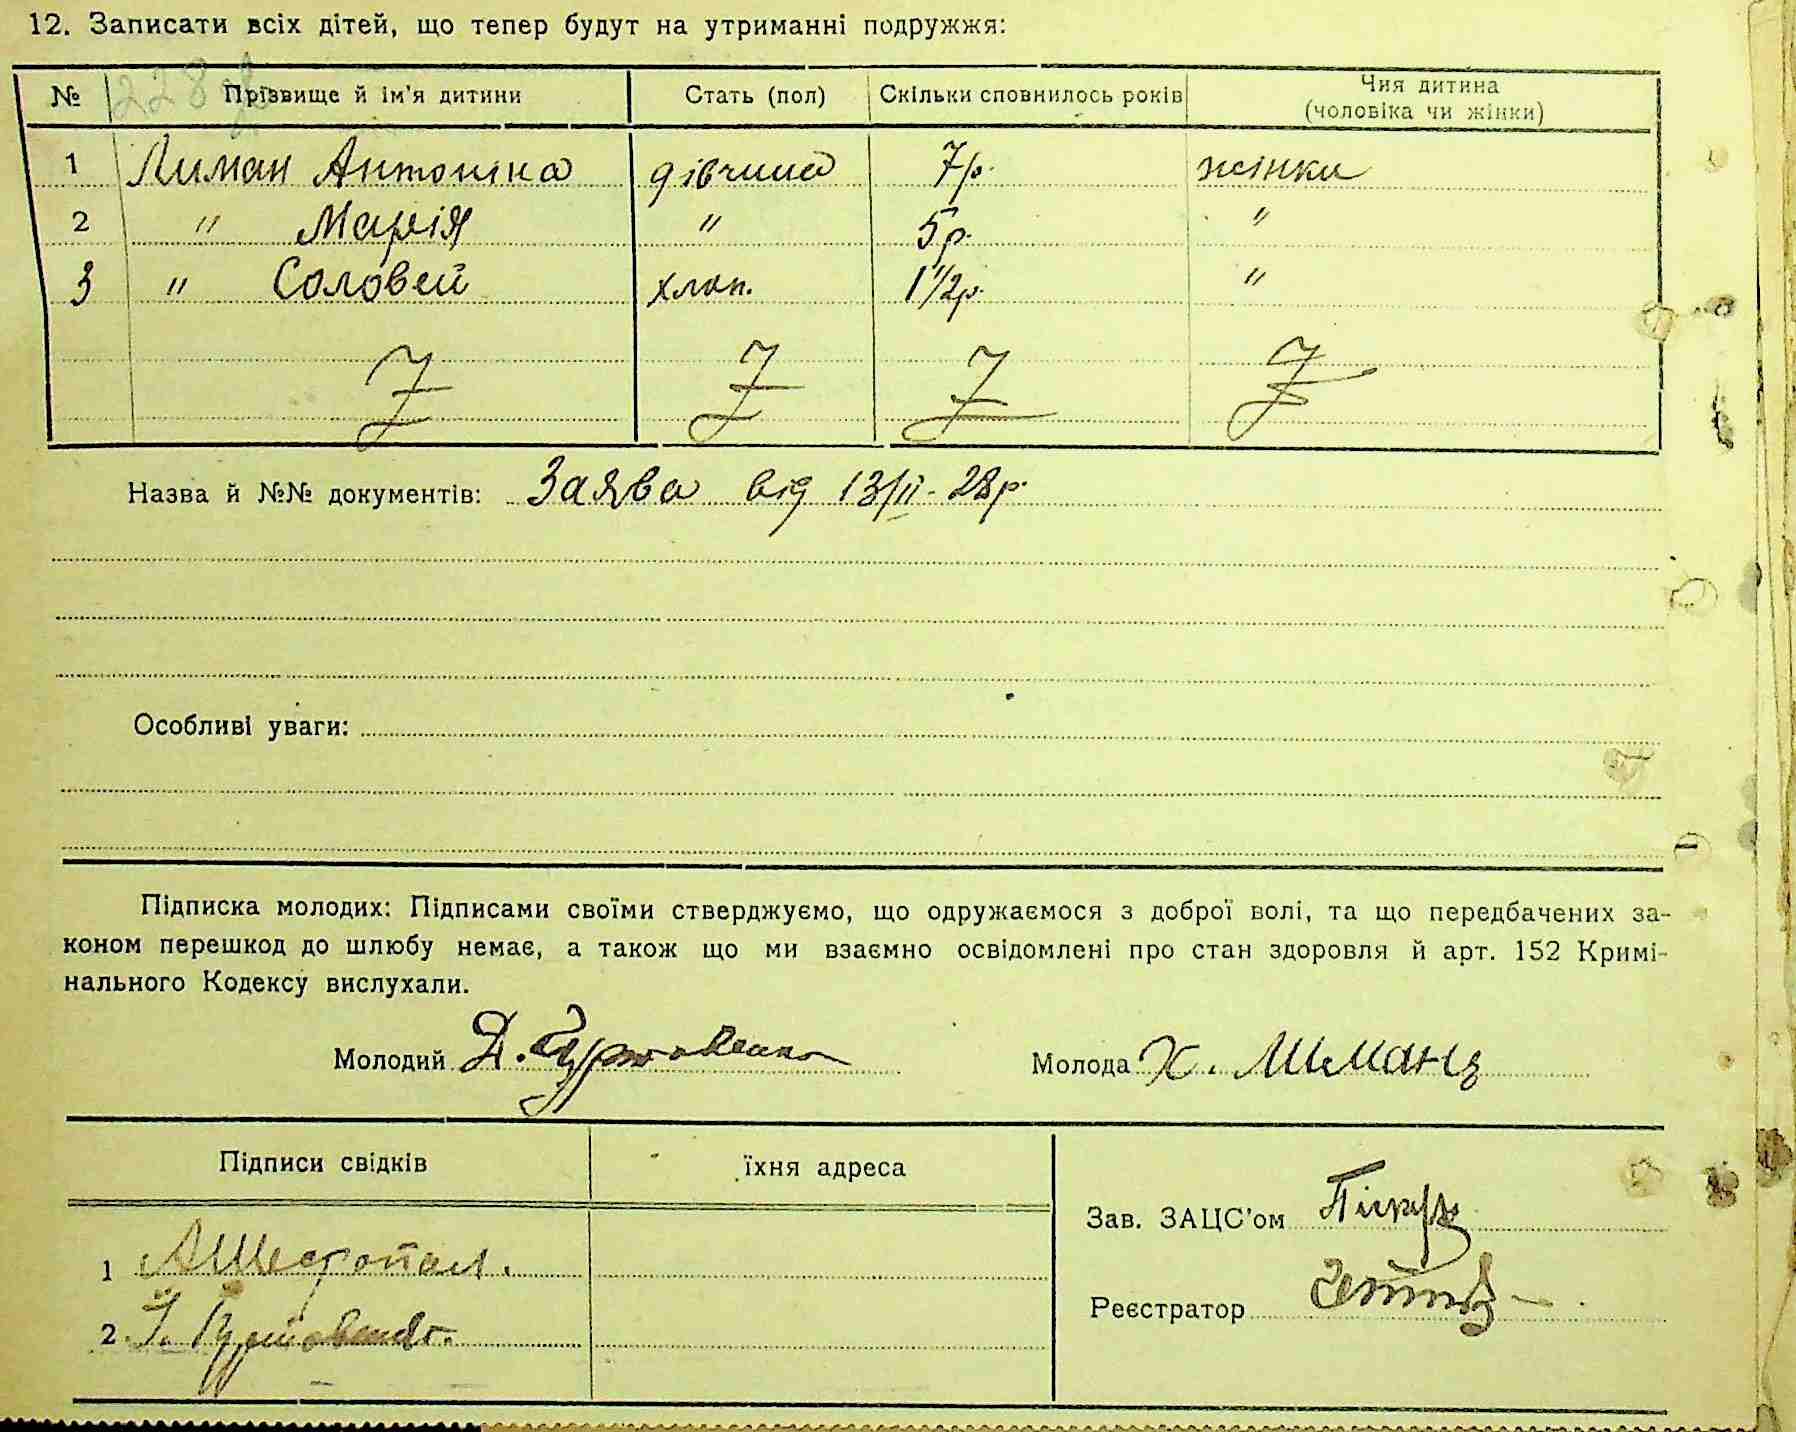 12. Записати всіх дітей, що тепер будут на утриманні подружжя:
№ Прізвище й ім'я дитини Стать (пол) Скільки сповнилось років Чия дитина (чоловіка чи жінки)
1 Лиман Антоніна дівчина 7р. жінки
2 " Марія " 5р. "
3 " Соловей хлоп. 1 1/2р. "
Z Z Z Z
Назва й №№ документів: Заява від 13/II-28р.
Особливі уваги:
Підписка молодих: Підписами своїми стверджуємо, що одружаємося з доброї волі, та що передбачених за-
коном перешкод до шлюбу немає, а також що ми взаємно освідомлені про стан здоровля й арт. 152 Кримі-
нального Кодексу вислухали.
Молодий Д. Молода Х. Лиманц
Підписи свідків їхня адреса
Зав. ЗАЦС'ом
1 АШестопал.
Реєстратор
2. І.